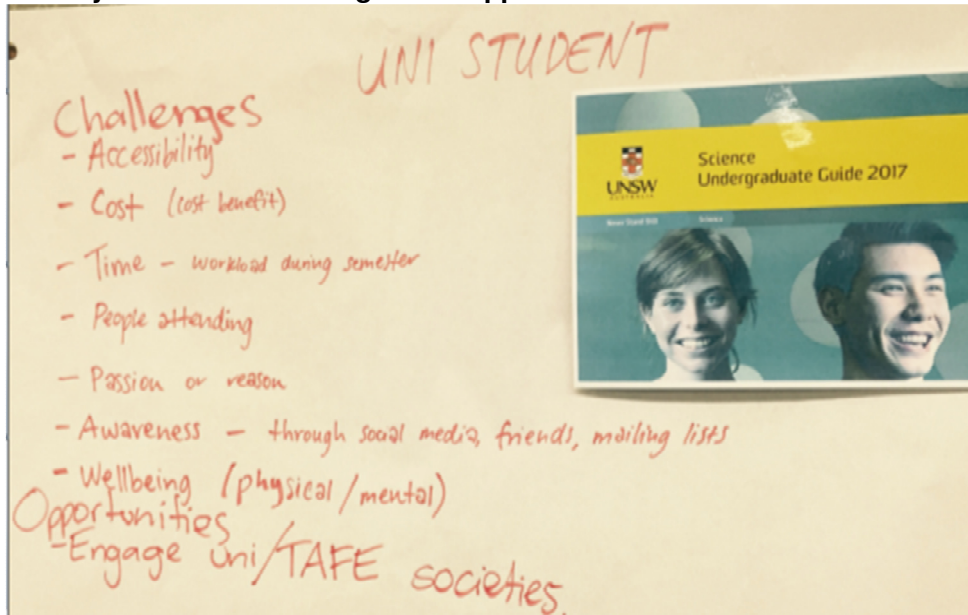 UNI STUDENT
Challenges
- Accessibility
- Cost (cost benefit)
- Time - workload during semester
- People attending
- Passion or reason
- Awareness - through social media, friends, mailing lists
- Wellbeing (physical/mental)
Opportunities
- Engage uni/TAFE societies.
UNSW
AUSTRALIA
Science
Undergraduate Guide 2017
Never Stand Still
Science